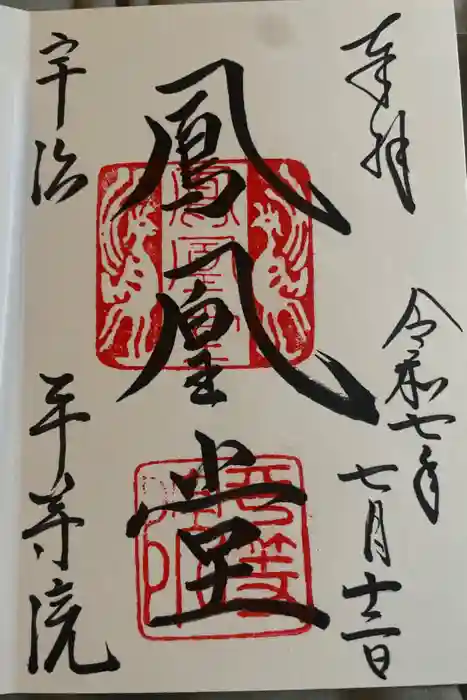 奉拝
令和七年
七月十二日
鳳凰堂
宇治
平等院
鳳凰堂
平等院印